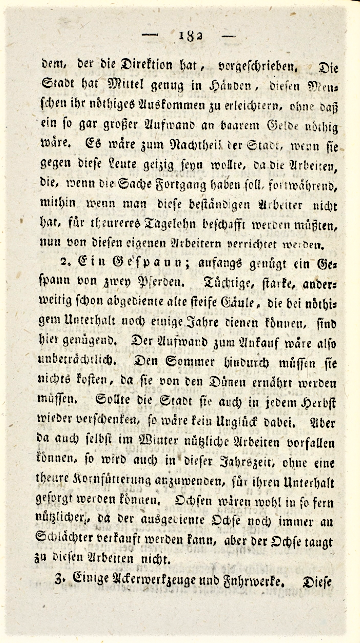 — 182 —
dem, der die Direktion hat, vorgeschrieben. Die
Stadt hat Mittel genug in Händen, diesen Men-
schen ihr nöthiges Auskommen zu erleichtern, ohne daß
ein so gar großer Aufwand an baarem Gelde nöthig
wäre. Es wäre zum Nachtheil der Stadt, wenn sie
gegen diese Leute geizig seyn wollte, da die Arbeiten,
die, wenn die Sache Fortgang haben soll, fortwährend,
mithin wenn man diese beständigen Arbeiter nicht
hat, für theureres Tagelohn beschafft werden müßten,
nun von diesen eigenen Arbeitern verrichtet werden.
2. Ein Gespann; anfangs genügt ein Ge-
spann von zwey Pferden. Tüchtige, starke, ander-
weitig schon abgediente alte steife Gäule, die bei nöthi-
gem Unterhalt noch einige Jahre dienen können, sind
hier genügend. Der Aufwand zum Ankauf wäre also
unbeträchtlich. Den Sommer hindurch müssen sie
nichts kosten, da sie von den Dünen ernährt werden
müssen. Sollte die Stadt sie auch in jedem Herbst
wieder verschenken, so wäre kein Unglück dabei. Aber
da auch selbst im Winter nützliche Arbeiten vorfallen
können, so wird auch in dieser Jahrszeit, ohne eine
theure Kornfütterung anzuwenden, für ihren Unterhalt
gesorgt werden können. Ochsen wären wohl in so fern
nützlicher, da der ausgediente Ochse noch immer an
Schlächter verkauft werden kann, aber der Ochse taugt
zu diesen Arbeiten nicht.
3. Einige Ackerwerkzeuge und Fuhrwerke. Diese